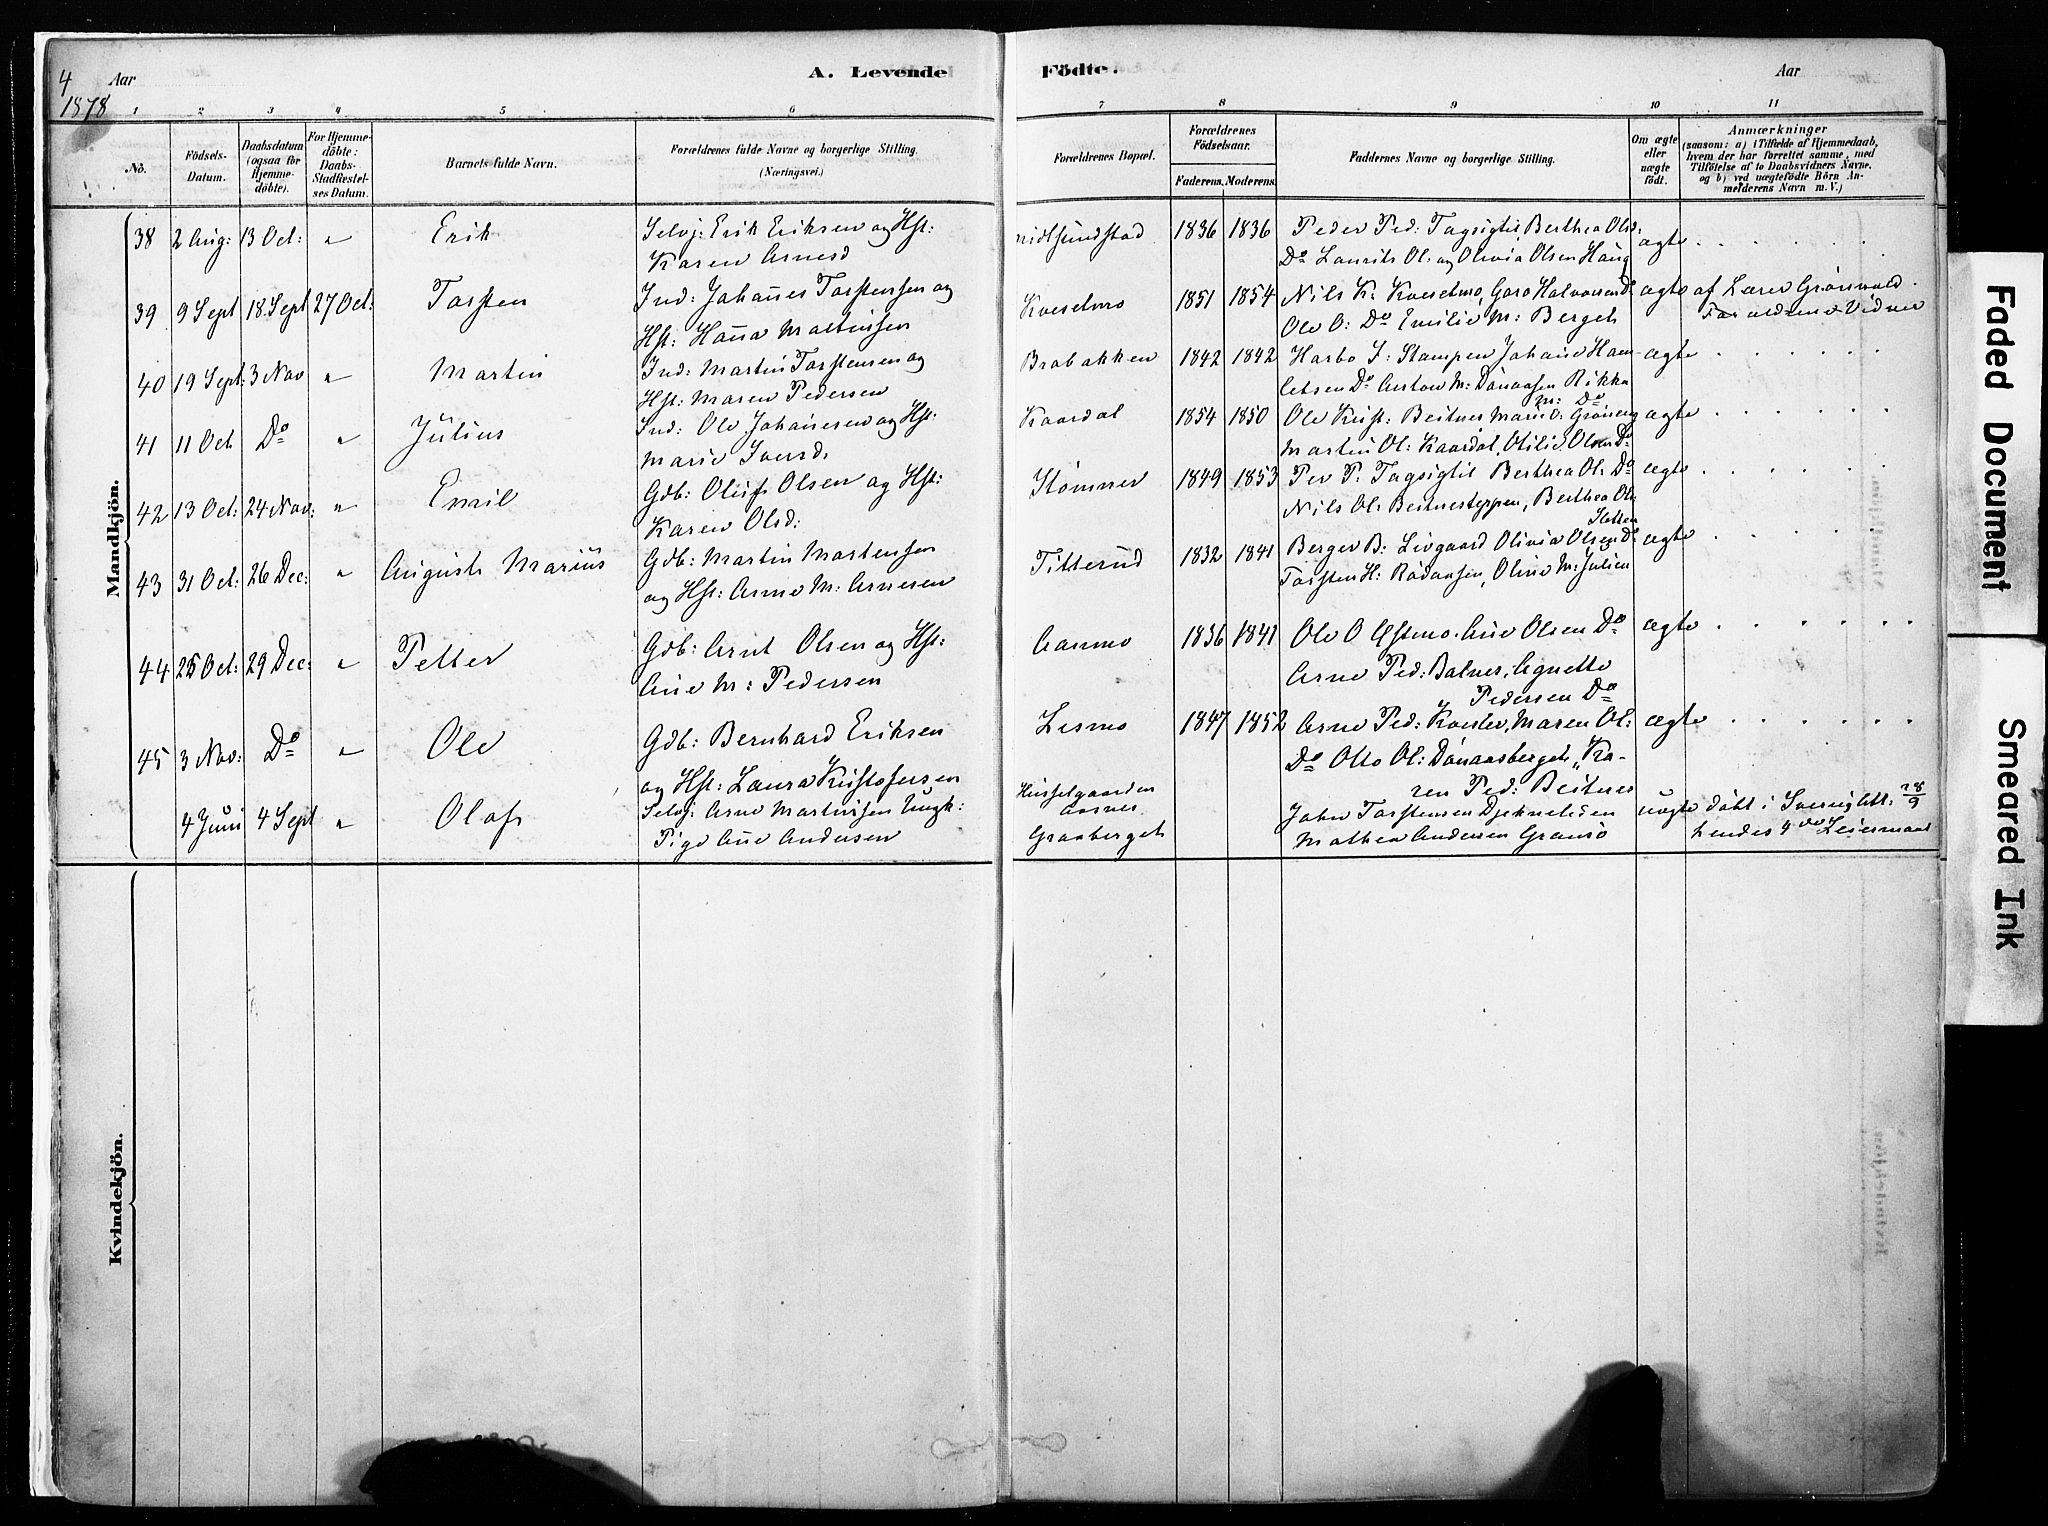 4
Aar
1878
A. Levende
Födte.
Aar
1 2 3 4 5 6 7 8 9 10 11
No.
Födsels-
Datum.
Daabsdatum
(ogsaa for
Hjemme-
döbte).
For Hjemme-
döbte:
Daabs-
Stadfæstel-
ses Datum.
Barnets fulde Navn.
Forældrenes fulde Navne og borgerlige Stilling.
(Næringsvei.)
Forældrenes Bopæl.
Forældrenes
Födselsaar.
Faderens.
Moderens.
Faddernes Navne og borgerlige Stilling.
Om ægte
eller
uægte
födt.
Anmærkninger
(saasom: a) i Tilfælde af Hjemmedaab,
hvem der har forrettet samme, med
Tilföielse af to Daabsvidners Navne.
og b) ved uægtefödte Börn An-
melderens Navn m. V.)
Mandkjön.
38 2 Aug: 13 Oct: " Erik
Selvj: Erik Eriksen og Hst:
Karen Arnesd
1836 1836
Peder Ped: Tagsigtis Berthea Olsd:
Do Laurits Ol: og Olivia Olsen Haug
ægte
39 9 Sept 18 Sept 27 Oct: Torsten
Ind: Johanes Torstensen og
Hst: Hana Martinsen
Kveselmo 1851 1854
Nils K: Kveselmo, Goro Halvorsen Do
Ole O: Do Emilie M: Berget
ægte
af Lærer Grönvold
Forældrene Vidner
40 19 Sept: 3 Nov " Martin
Ind: Martin Torstensen og
Hst: Maren Pedersen
Brobakken 1842 1842
Harbo I: Stampen Johane Ham-
letsen Do Gustav M: Dönaasen Rikka
M: Do
ægte
41 11 Oct Do " Julius
Ind: Ole Johanesen og Hst:
Marie Iversd.
Kaardal 1854 1850
Ole Krist: Beitner, Marie O: Gröneng
Martin Ol: Kaardal, Otilie Olsen Do
ægte
42 13 Oct: 24 Nov: " Emil
Gdb: Oluf Olsen og Hst:
Karen Olsd:
Stömner 1849 1853
Per P: Tagsigtis Berthea Ol: Do
Nils Ol: Beitnesteppen, Berthea Ol:
Sletten
ægte
43 31 Oct: 26 Dec: " August Marius
Gdb: Martin Martensen
og Hst: Anne M: Arnesen
Titterud 1832 1841
Berger B: Livgaard Olivia Olsen Do
Torsten H: Rödaasen, Oline M: Julien
ægte
44 25 Oct: 29 Dec: " Petter
Gdb: Arnt Olsen og Hst:
Ane M: Pedersen
Aasmo 1836 1841
Ole O Østmo. Ane Olsen Do
Arne Ped: Balnes, Agnette
Pedersen Do
ægte
45 3 Nov: Do " Ole
Gdb: Bernhard Eriksen
og Hst: Laura Kristofersen
Lismo 1847 1852
Arne Ped: Kveslev, Maren Ol:
Do Otto Ol: Dönaasberget, Ka-
ren Ped: Beitnes
ægte
4 Juni 4 Sept " Olaf
Selvj: Arne Martinsen Ungk:
Pige Ane Andersen
Husselgaarden
Aasnes
Graaberget
John Torstensen Djekneliden
Mathea Andersen Gransö
uægte
döbt i Sverig
hendes 4de Leiermaal
Kvindekjön.
Faded Document
Smeared Ink